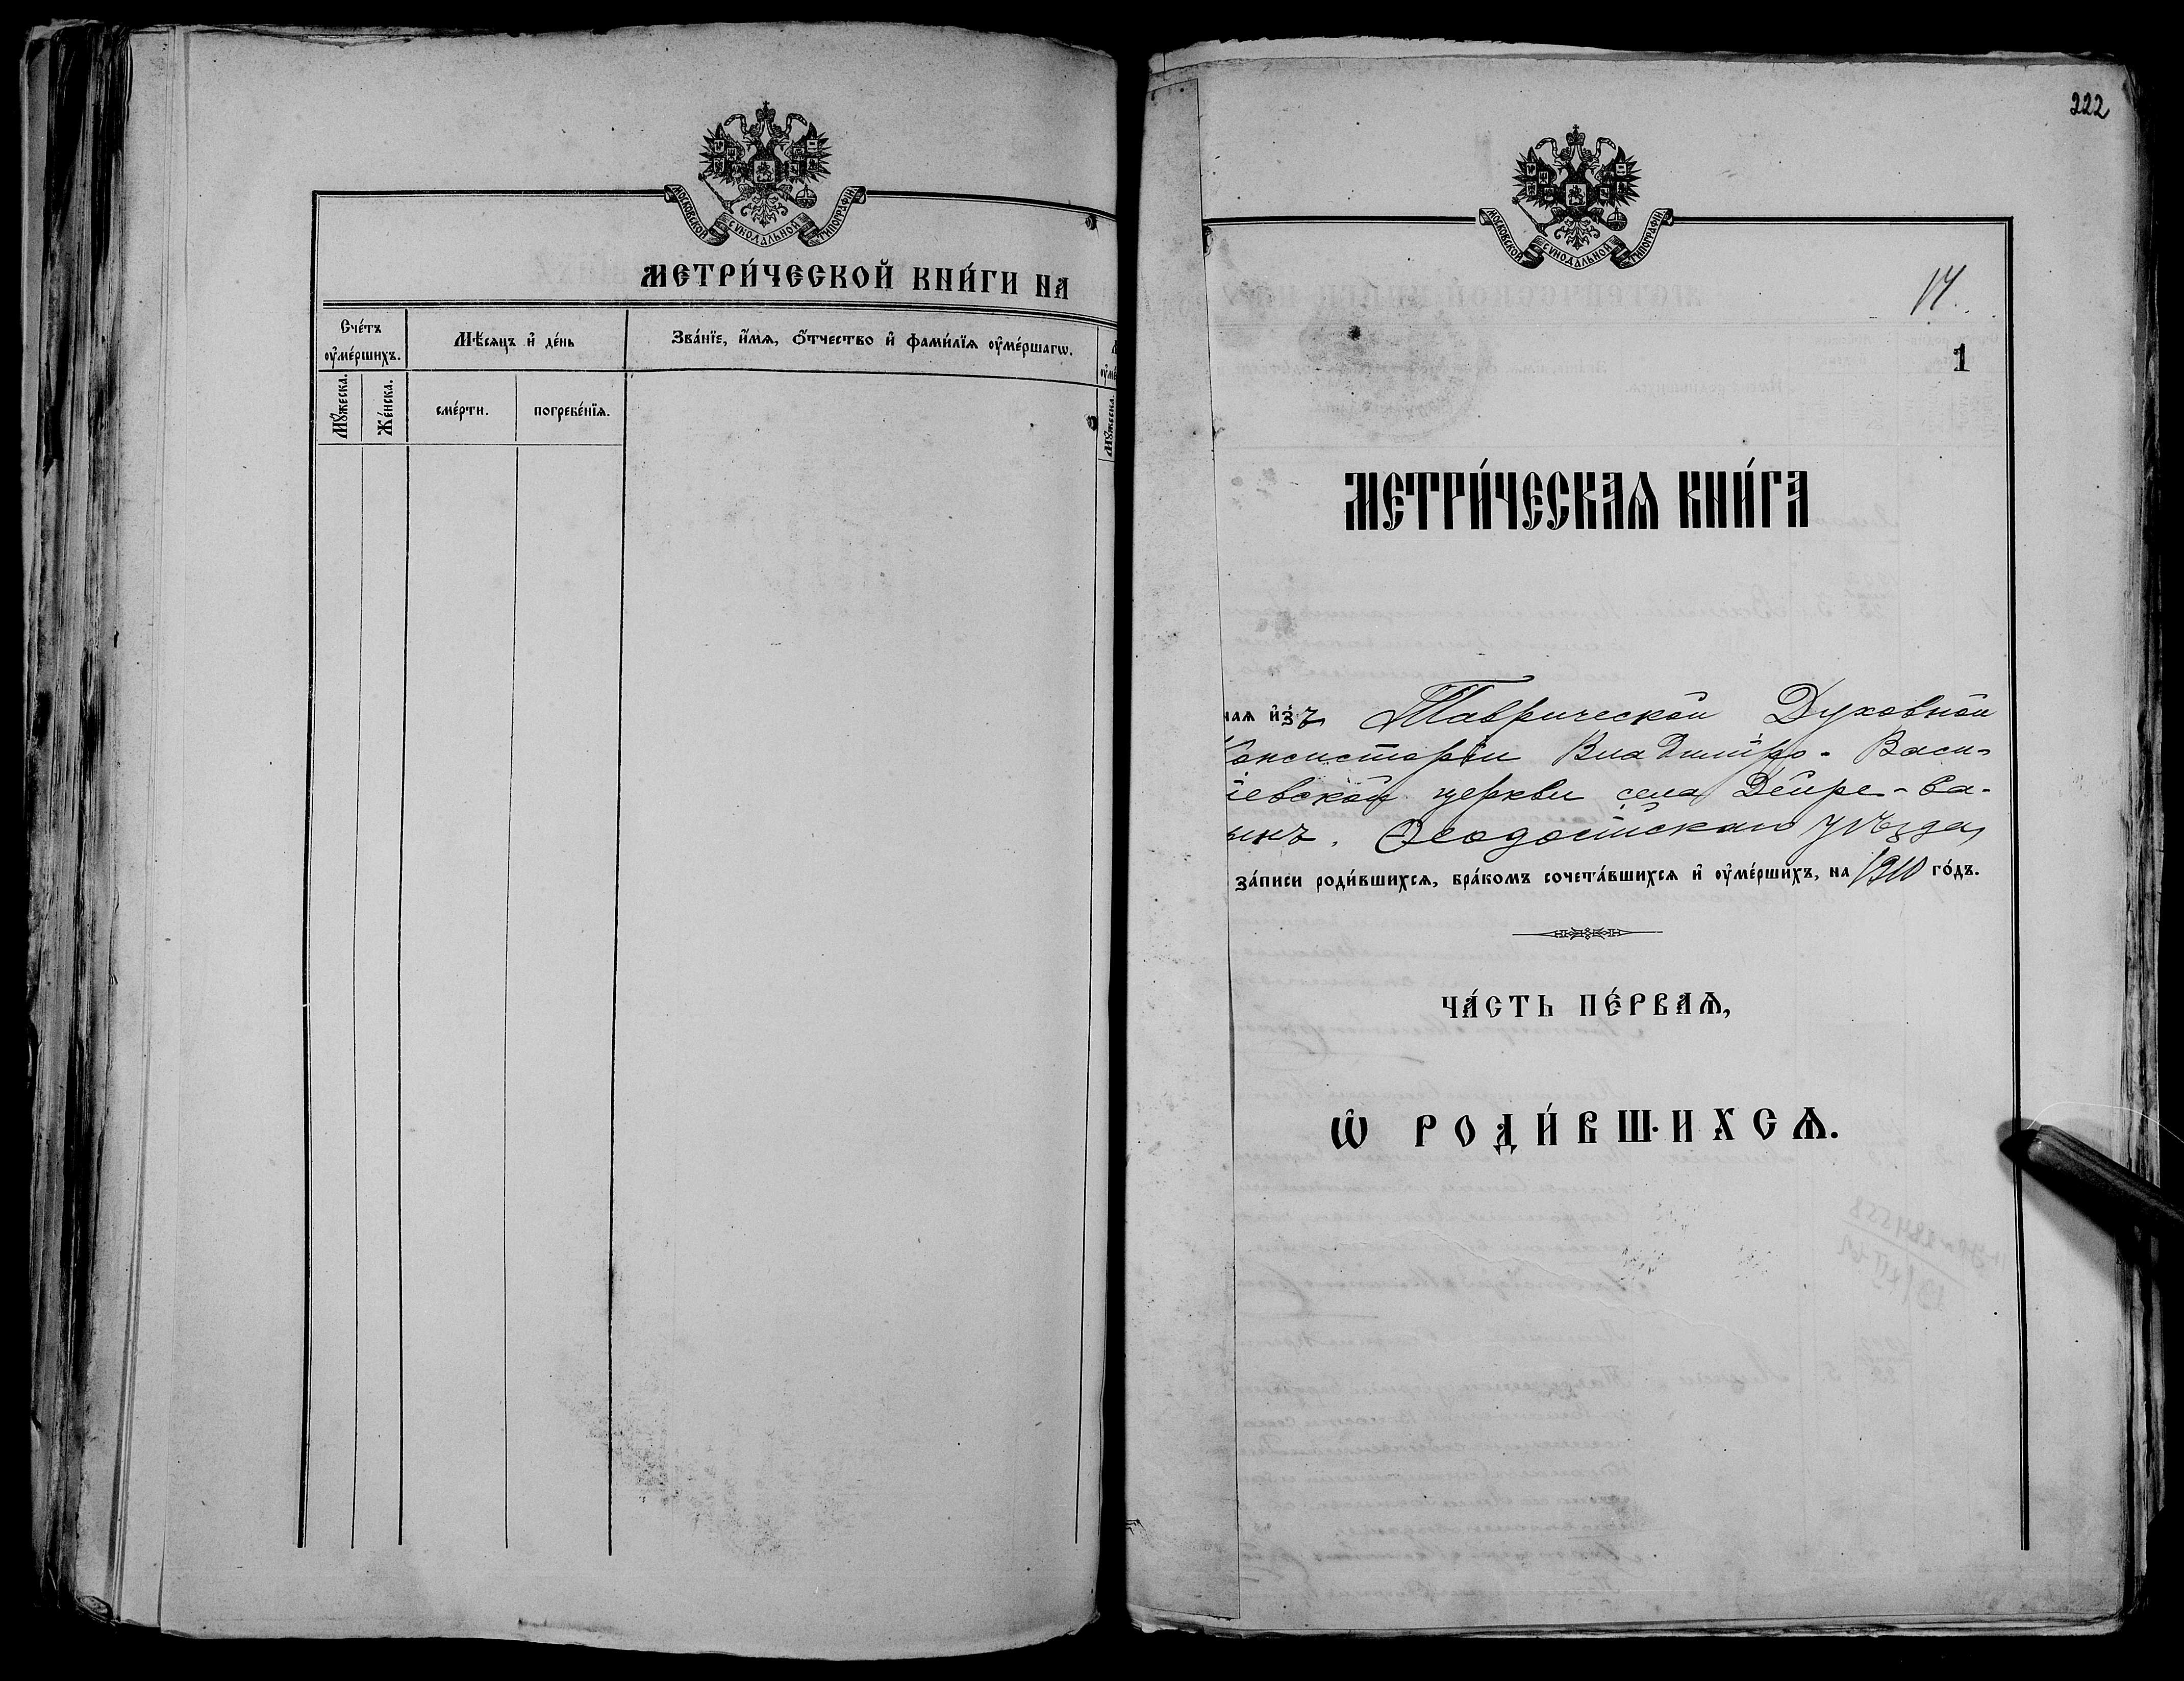 МОСКОВСКОЙ СѴНОДАЛЬНОЙ ТИПОГРАФІИ
МЕТРИ́ЧЕСКОЙ КНИ́ГИ НА
Сче́тъ ᲂу҆ме́ршихъ.
Мѣ́сѧцъ и҆ де́нь
Зва́нїе, и҆́мѧ, ѻ҆́тчество и҆ фами́лїѧ ᲂу҆ме́ршагѡ.
Мꙋ́жеска.
Же́нска.
сме́рти.
погребе́нїѧ.
Мꙋ́жеска.
222
МОСКОВСКОЙ СѴНОДАЛЬНОЙ ТИПОГРАФІИ
14.
1
МЕТРИ́ЧЕСКАѦ КНИ́ГА
наѧ и҆зъ Таврической Духовной
Консисторіи Владиміро-Васи-
іевской церкви села Дейре-Са-
ынъ. Ѳеодосійскаго уѣзда,
за́писи роди́вшихсѧ, бра́комъ сочета́вшихсѧ и҆ ᲂу҆ме́ршихъ, на 1910 го́дъ.
ЧА́СТЬ ПЕ́РВАѦ,
Ѡ҆ РОДИ́ВШИХСѦ.